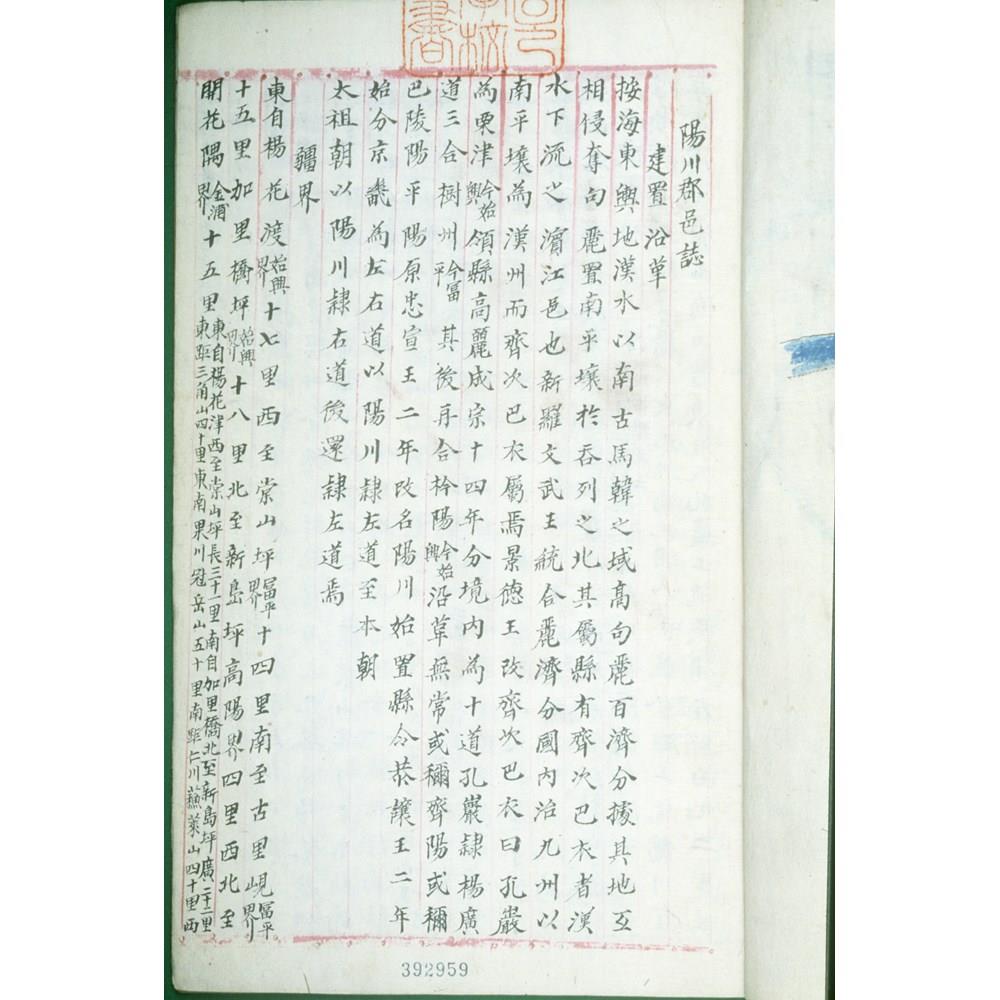 陽川郡邑誌
建置沿革
按海東輿地漢水以南古馬韓之域高句麗百濟分據其地互
相侵奪句麗置南平壤於吞列之北其屬縣有齊次巴衣者漢
水下流之濱江邑也新羅文武王統合麗濟分國內治九州以
南平壤爲漢州而齊次巴衣屬焉景德王改齊次巴衣曰孔巖
爲栗津今始興領縣高麗成宗十四年分境內爲十道孔巖隷楊廣
道三合樹州今富平其後再合衿陽今始興沿革無常或稱齊陽或稱
巴陵陽平陽原忠宣王二年改名陽川始置縣令恭讓王二年
始分京畿爲左右道以陽川隷左道至本朝
太祖朝以陽川隷右道後還隷左道焉
疆界
東自楊花渡始興界十七里西至棠山坪富平界十四里南至古里峴富平界
十五里加里橋坪始興界十八里北至新島坪高陽界四里西北至
開花隅金浦界十五里東自楊花津西至棠山坪長三十一里南自加里橋北至新島坪廣二十二里
東距三角山四十里東南果川冠岳山五十里南距仁川蘇萊山四十里西
392959